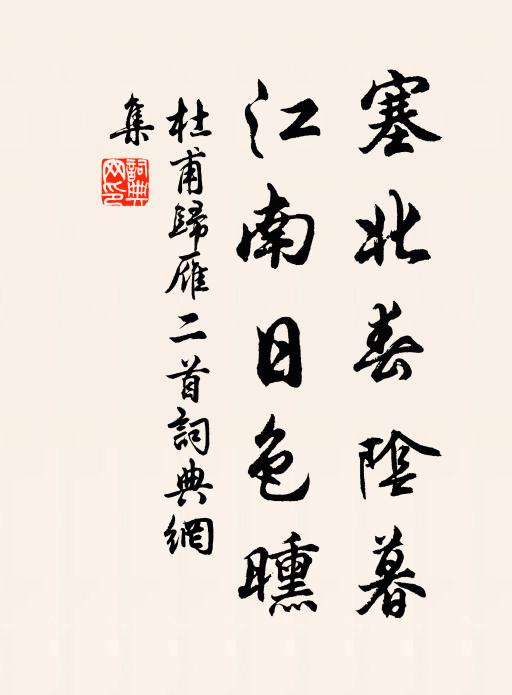 塞北春陰暮
江南日色曛
杜甫歸雁二首詞典網
集
詞典
网印